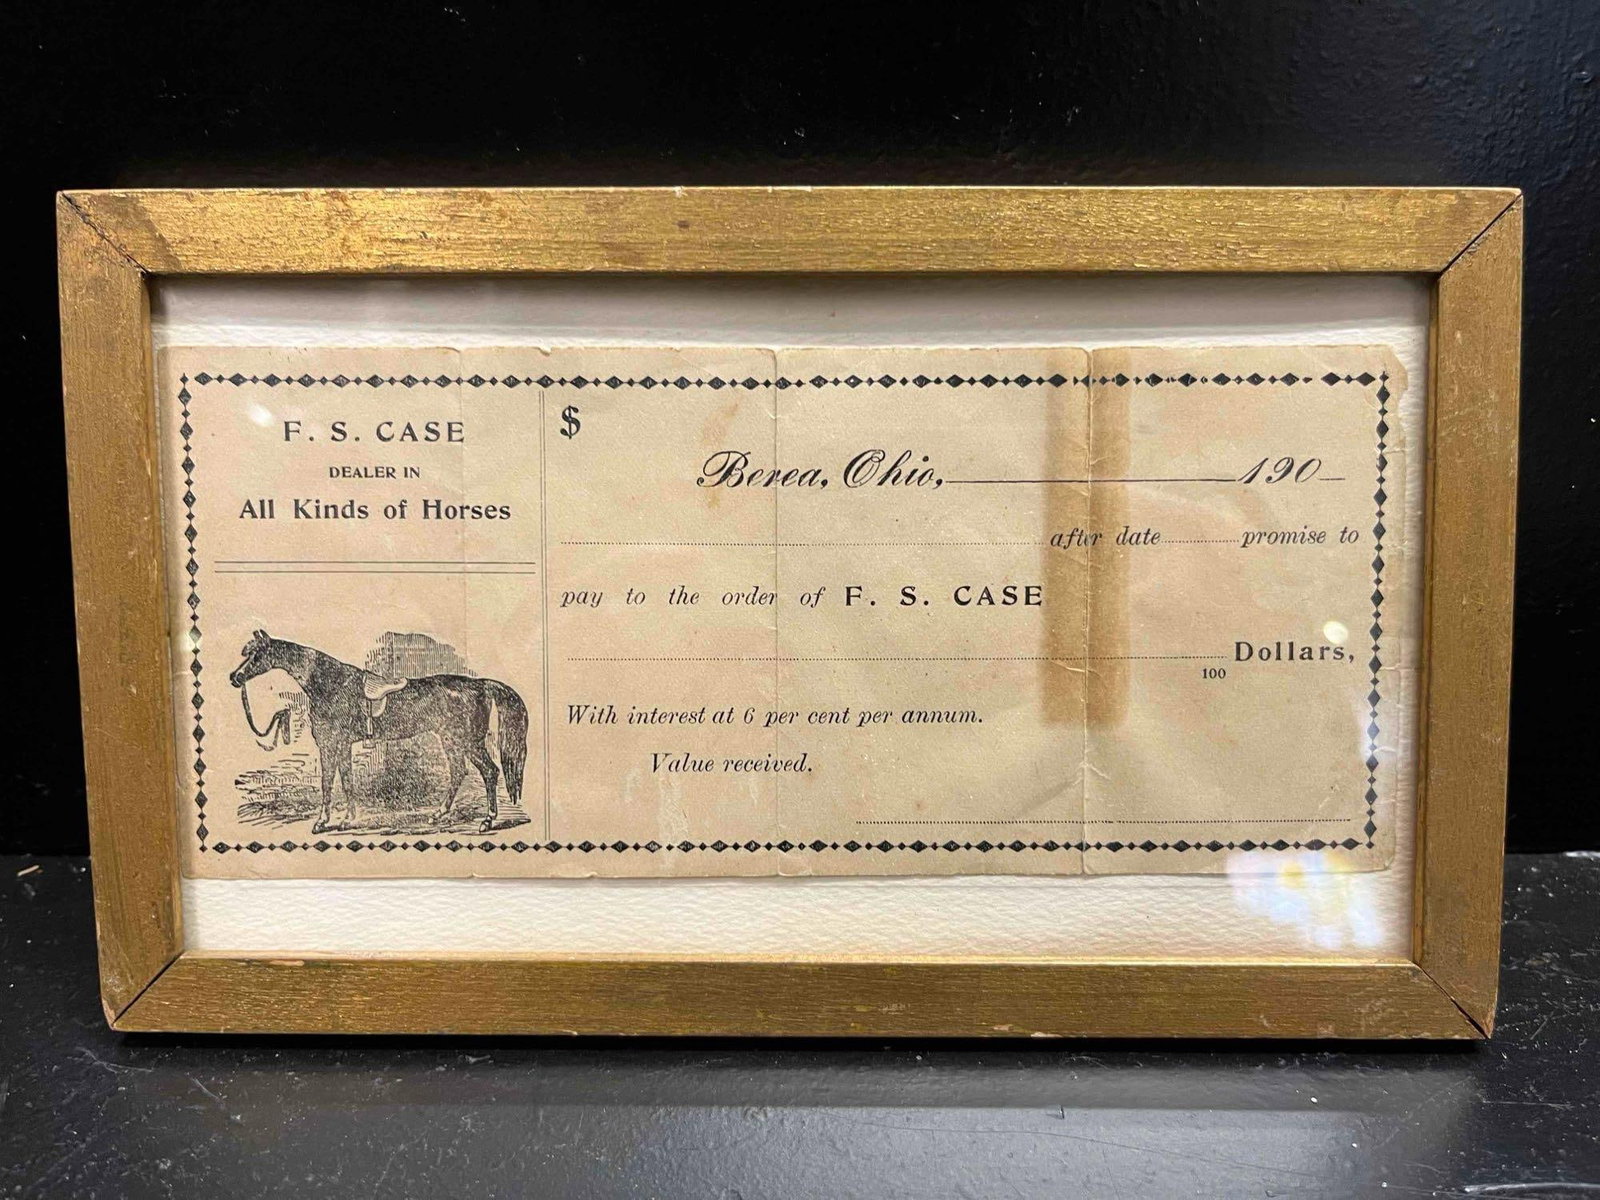 F. S. CASE
DEALER IN
All Kinds of Horses
$
Berea, Ohio, 190
after date promise to
pay to the order of F. S. CASE
Dollars,
100
With interest at 6 per cent per annum.
Value received.